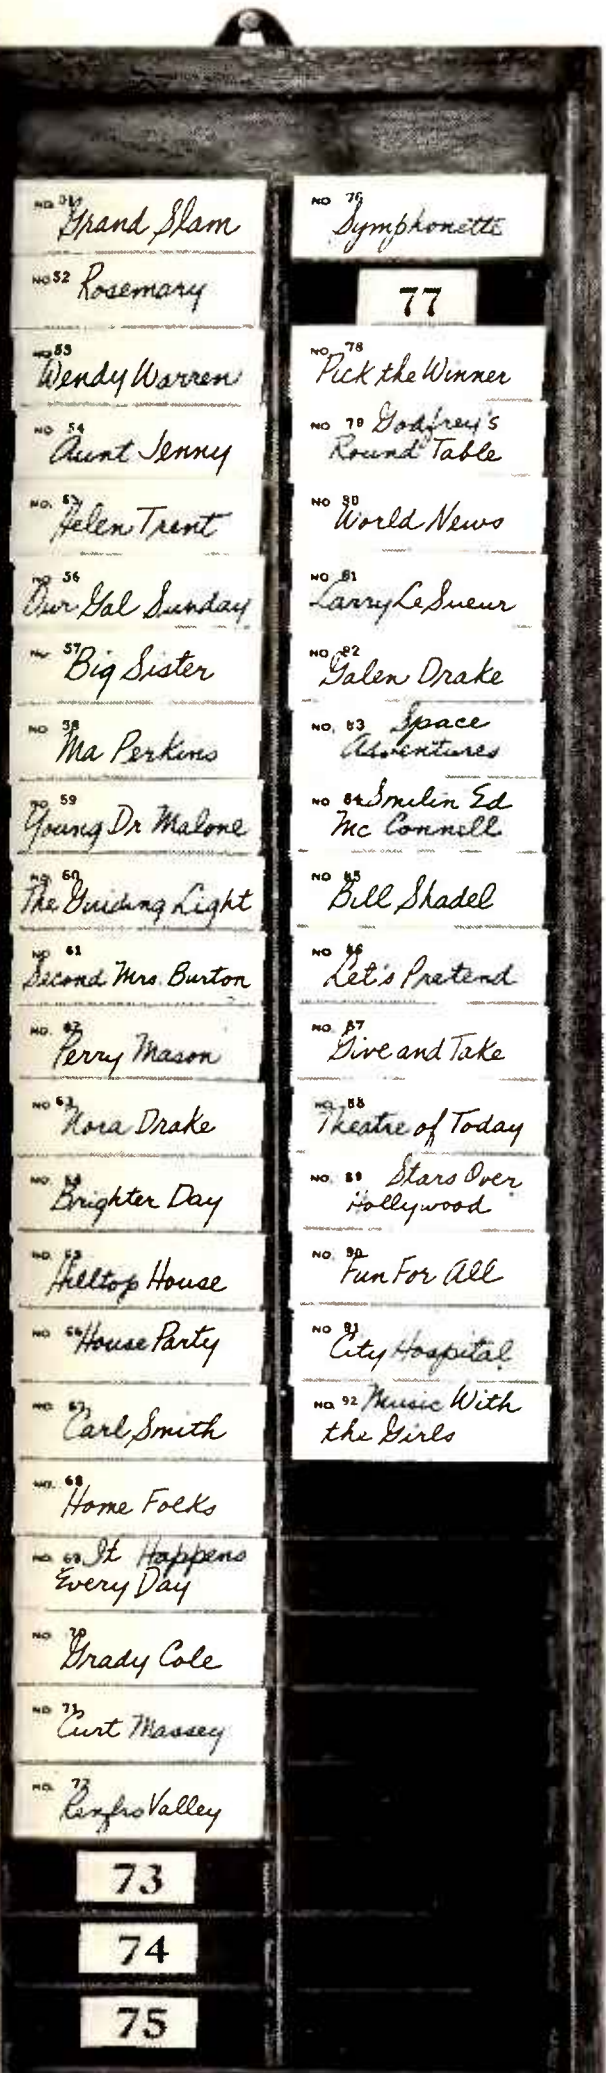 NO. 51 Grand Slam
NO 52 Rosemary
NO. 53
Wendy Warren
NO 54
Aunt Jenny
NO. 55
Helen Trent
NO 56
Our Gal Sunday
NO 57
Big Sister
NO 58
Ma Perkins
NO. 59
Young Dr Malone
NO. 60
The Guiding Light
NO 61
Second Mrs. Burton
NO. 62
Perry Mason
NO 63
Nora Drake
NO. 64
Brighter Day
NO. 65
Hilltop House
NO 66 House Party
NO 67
Carl Smith
NO. 68
Home Folks
NO. 69 It Happens
Every Day
NO 70
Grady Cole
NO 71
Curt Massey
NO. 72
Renfro Valley
73
74
75
NO 76
Symphonette
77
NO. 78
Pick the Winner
NO 79 Godfrey's
Round Table
NO 80
World News
NO 81
Larry LeSueur
NO 82
Galen Drake
NO. 83 Space
Adventures
NO 84 Smilin Ed
Mc Connell
NO 85
Bill Shadel
NO 86
Let's Pretend
NO. 87
Give and Take
NO. 88
Theatre of Today
NO. 89 Stars Over
Hollywood
NO. 90
Fun For All
NO 91
City Hospital
NO. 92 Music With
the Girls